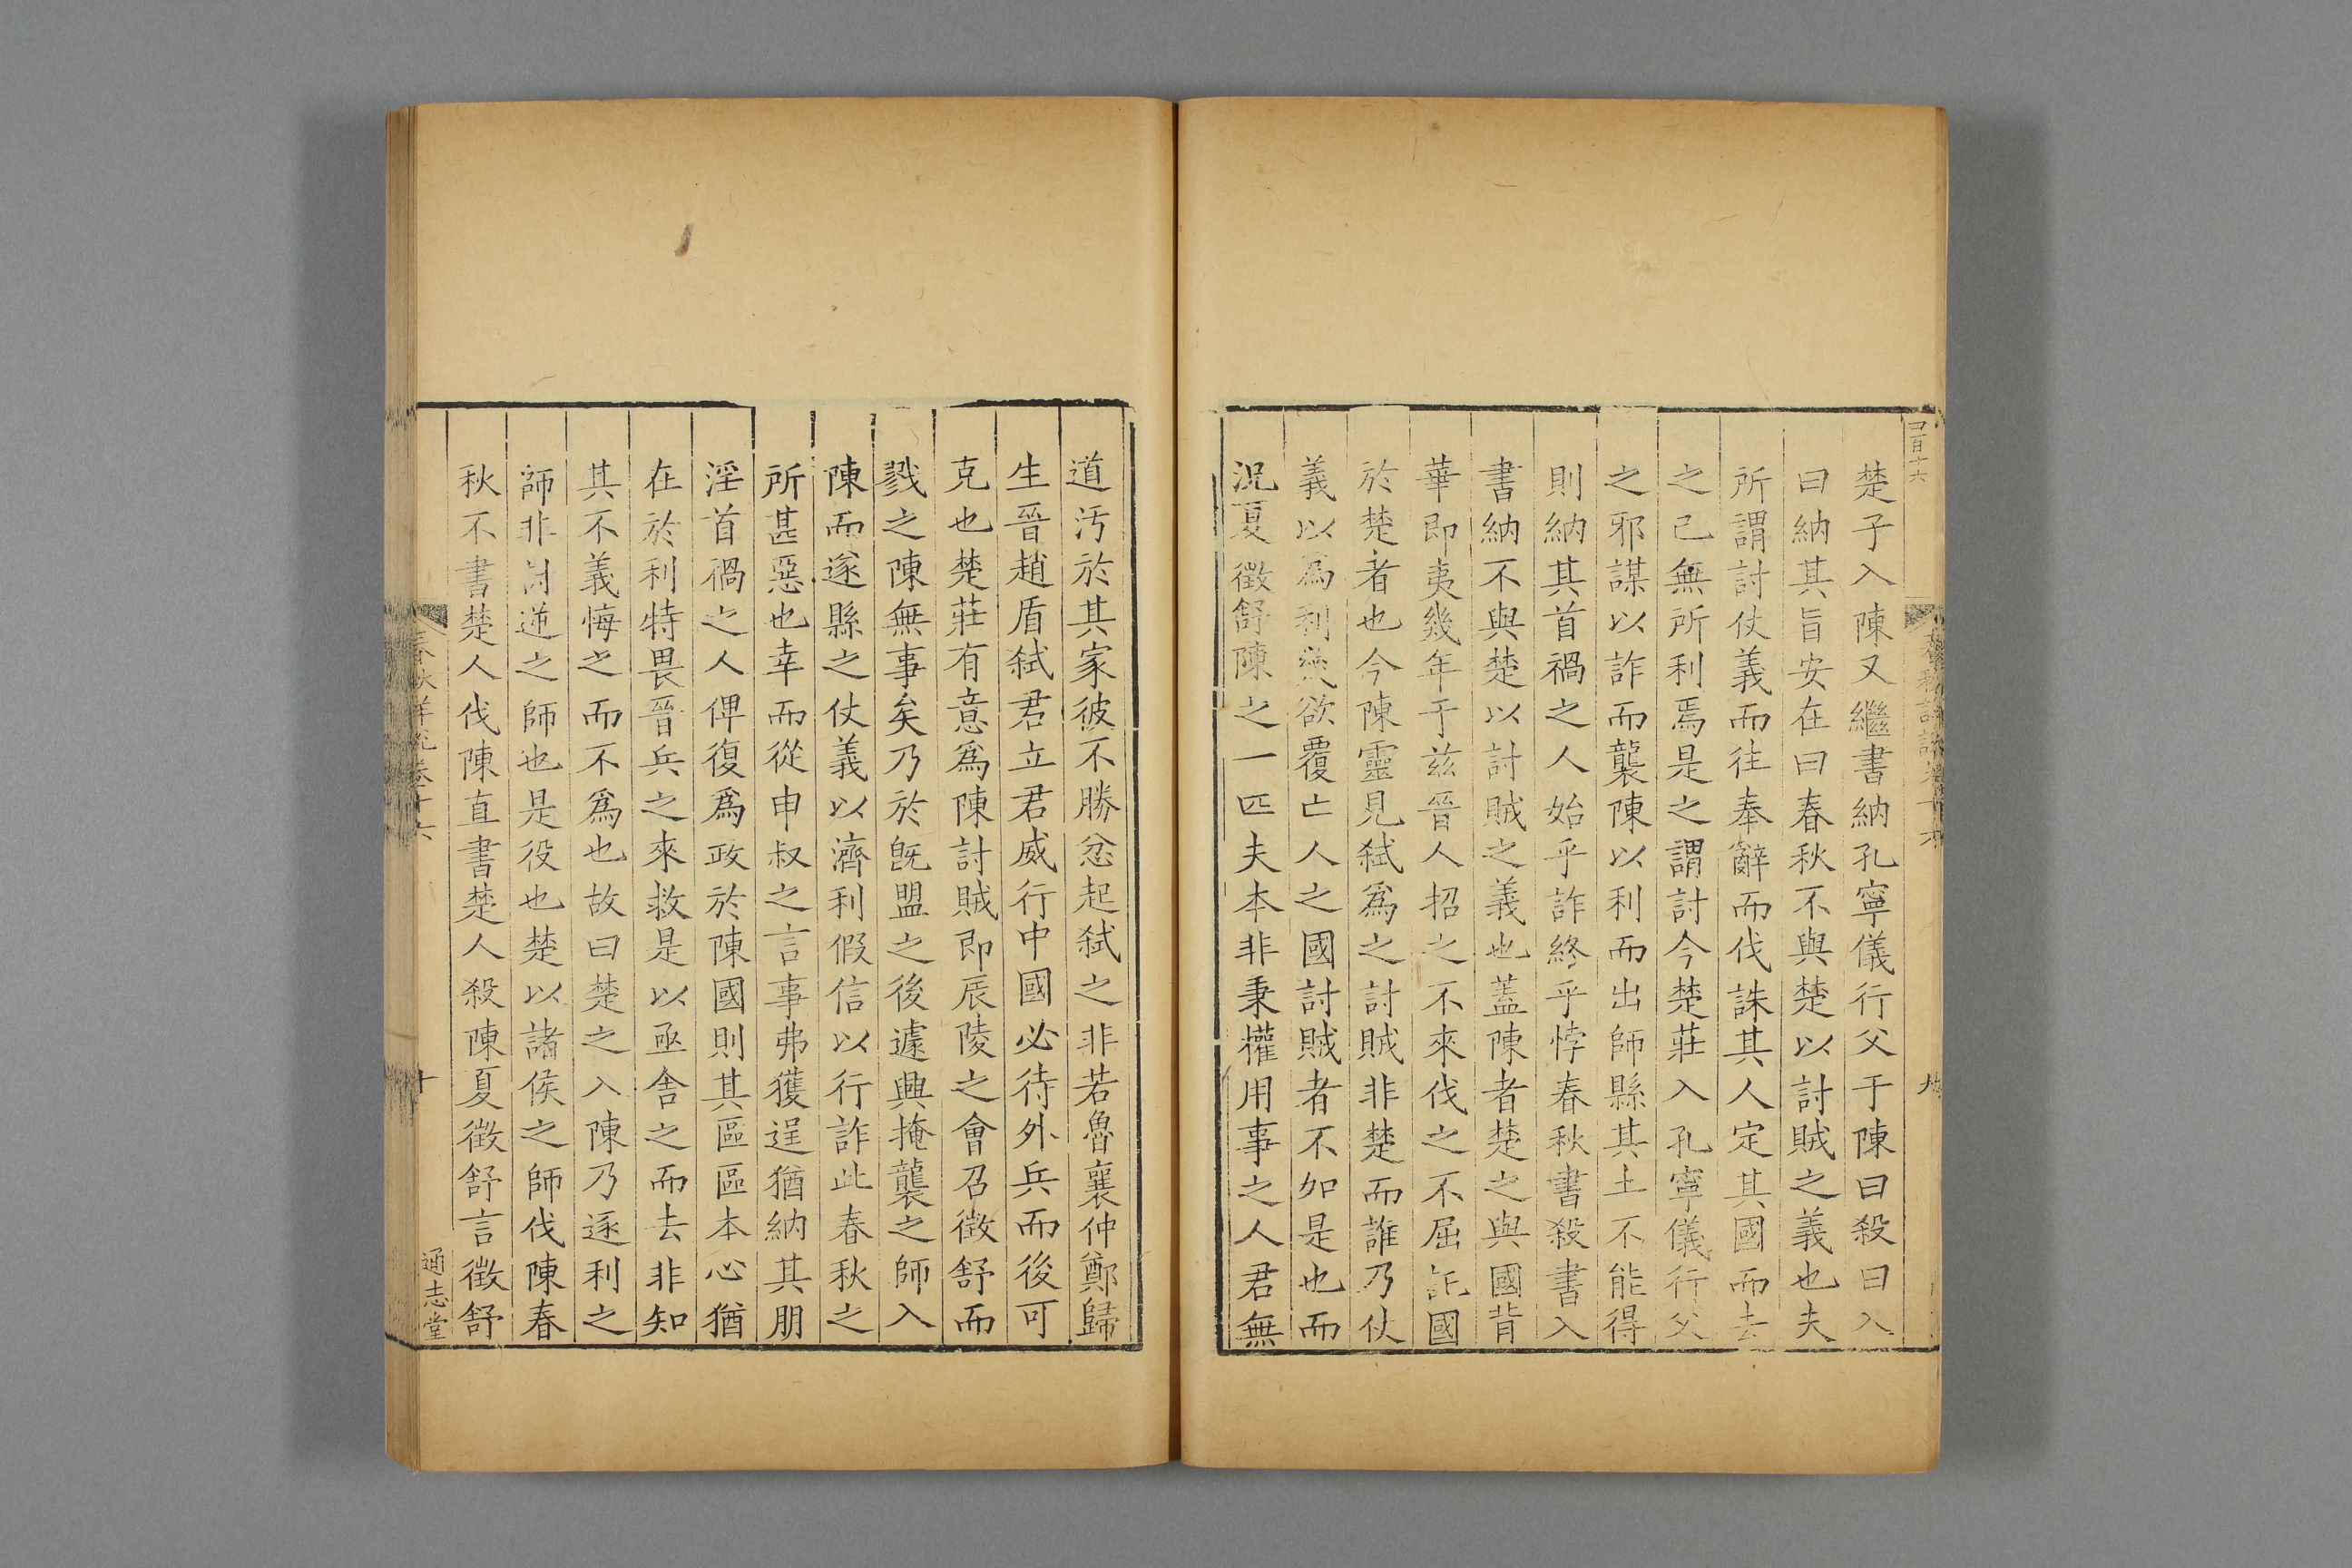 四百十六
楚子入陳又繼書納孔寧儀行父于陳曰殺曰入
曰納其旨安在曰春秋不與楚以討賊之義也夫
所謂討仗義而往奉辭而伐誅其人定其國而去
之己無所利焉是之謂討今楚莊入孔寧儀行父
之邪謀以詐而襲陳以利而出師縣其土不能得
則納其首禍之人始乎詐終乎悖春秋書殺書入
書納不與楚以討賊之義也蓋陳者楚之與國背
華即夷幾年于兹晉人招之不來伐之不屈託國
於楚者也今陳靈見弑爲之討賊非楚而誰乃仗
義以爲利從欲覆亡人之國討賊者不如是也而
况夏徵舒陳之一匹夫本非秉權用事之人君無
道汚於其家彼不勝忿起弑之非若魯襄仲鄭歸
生晉趙盾弑君立君威行中國必待外兵而後可
克也楚莊有意爲陳討賊即辰陵之會召徵舒而
戮之陳無事矣乃於旣盟之後遽興掩襲之師入
陳而遂縣之仗義以濟利假信以行詐此春秋之
所甚惡也幸而從申叔之言事弗獲逞猶納其朋
淫首禍之人俾復爲政於陳國則其區區本心猶
在於利特畏晉兵之來救是以亟舍之而去非知
其不義悔之而不爲也故曰楚之入陳乃逐利之
師非討逆之師也是役也楚以諸侯之師伐陳春
秋不書楚人伐陳直書楚人殺陳夏徵舒言徵舒
春秋詳說卷十六
十
通志堂